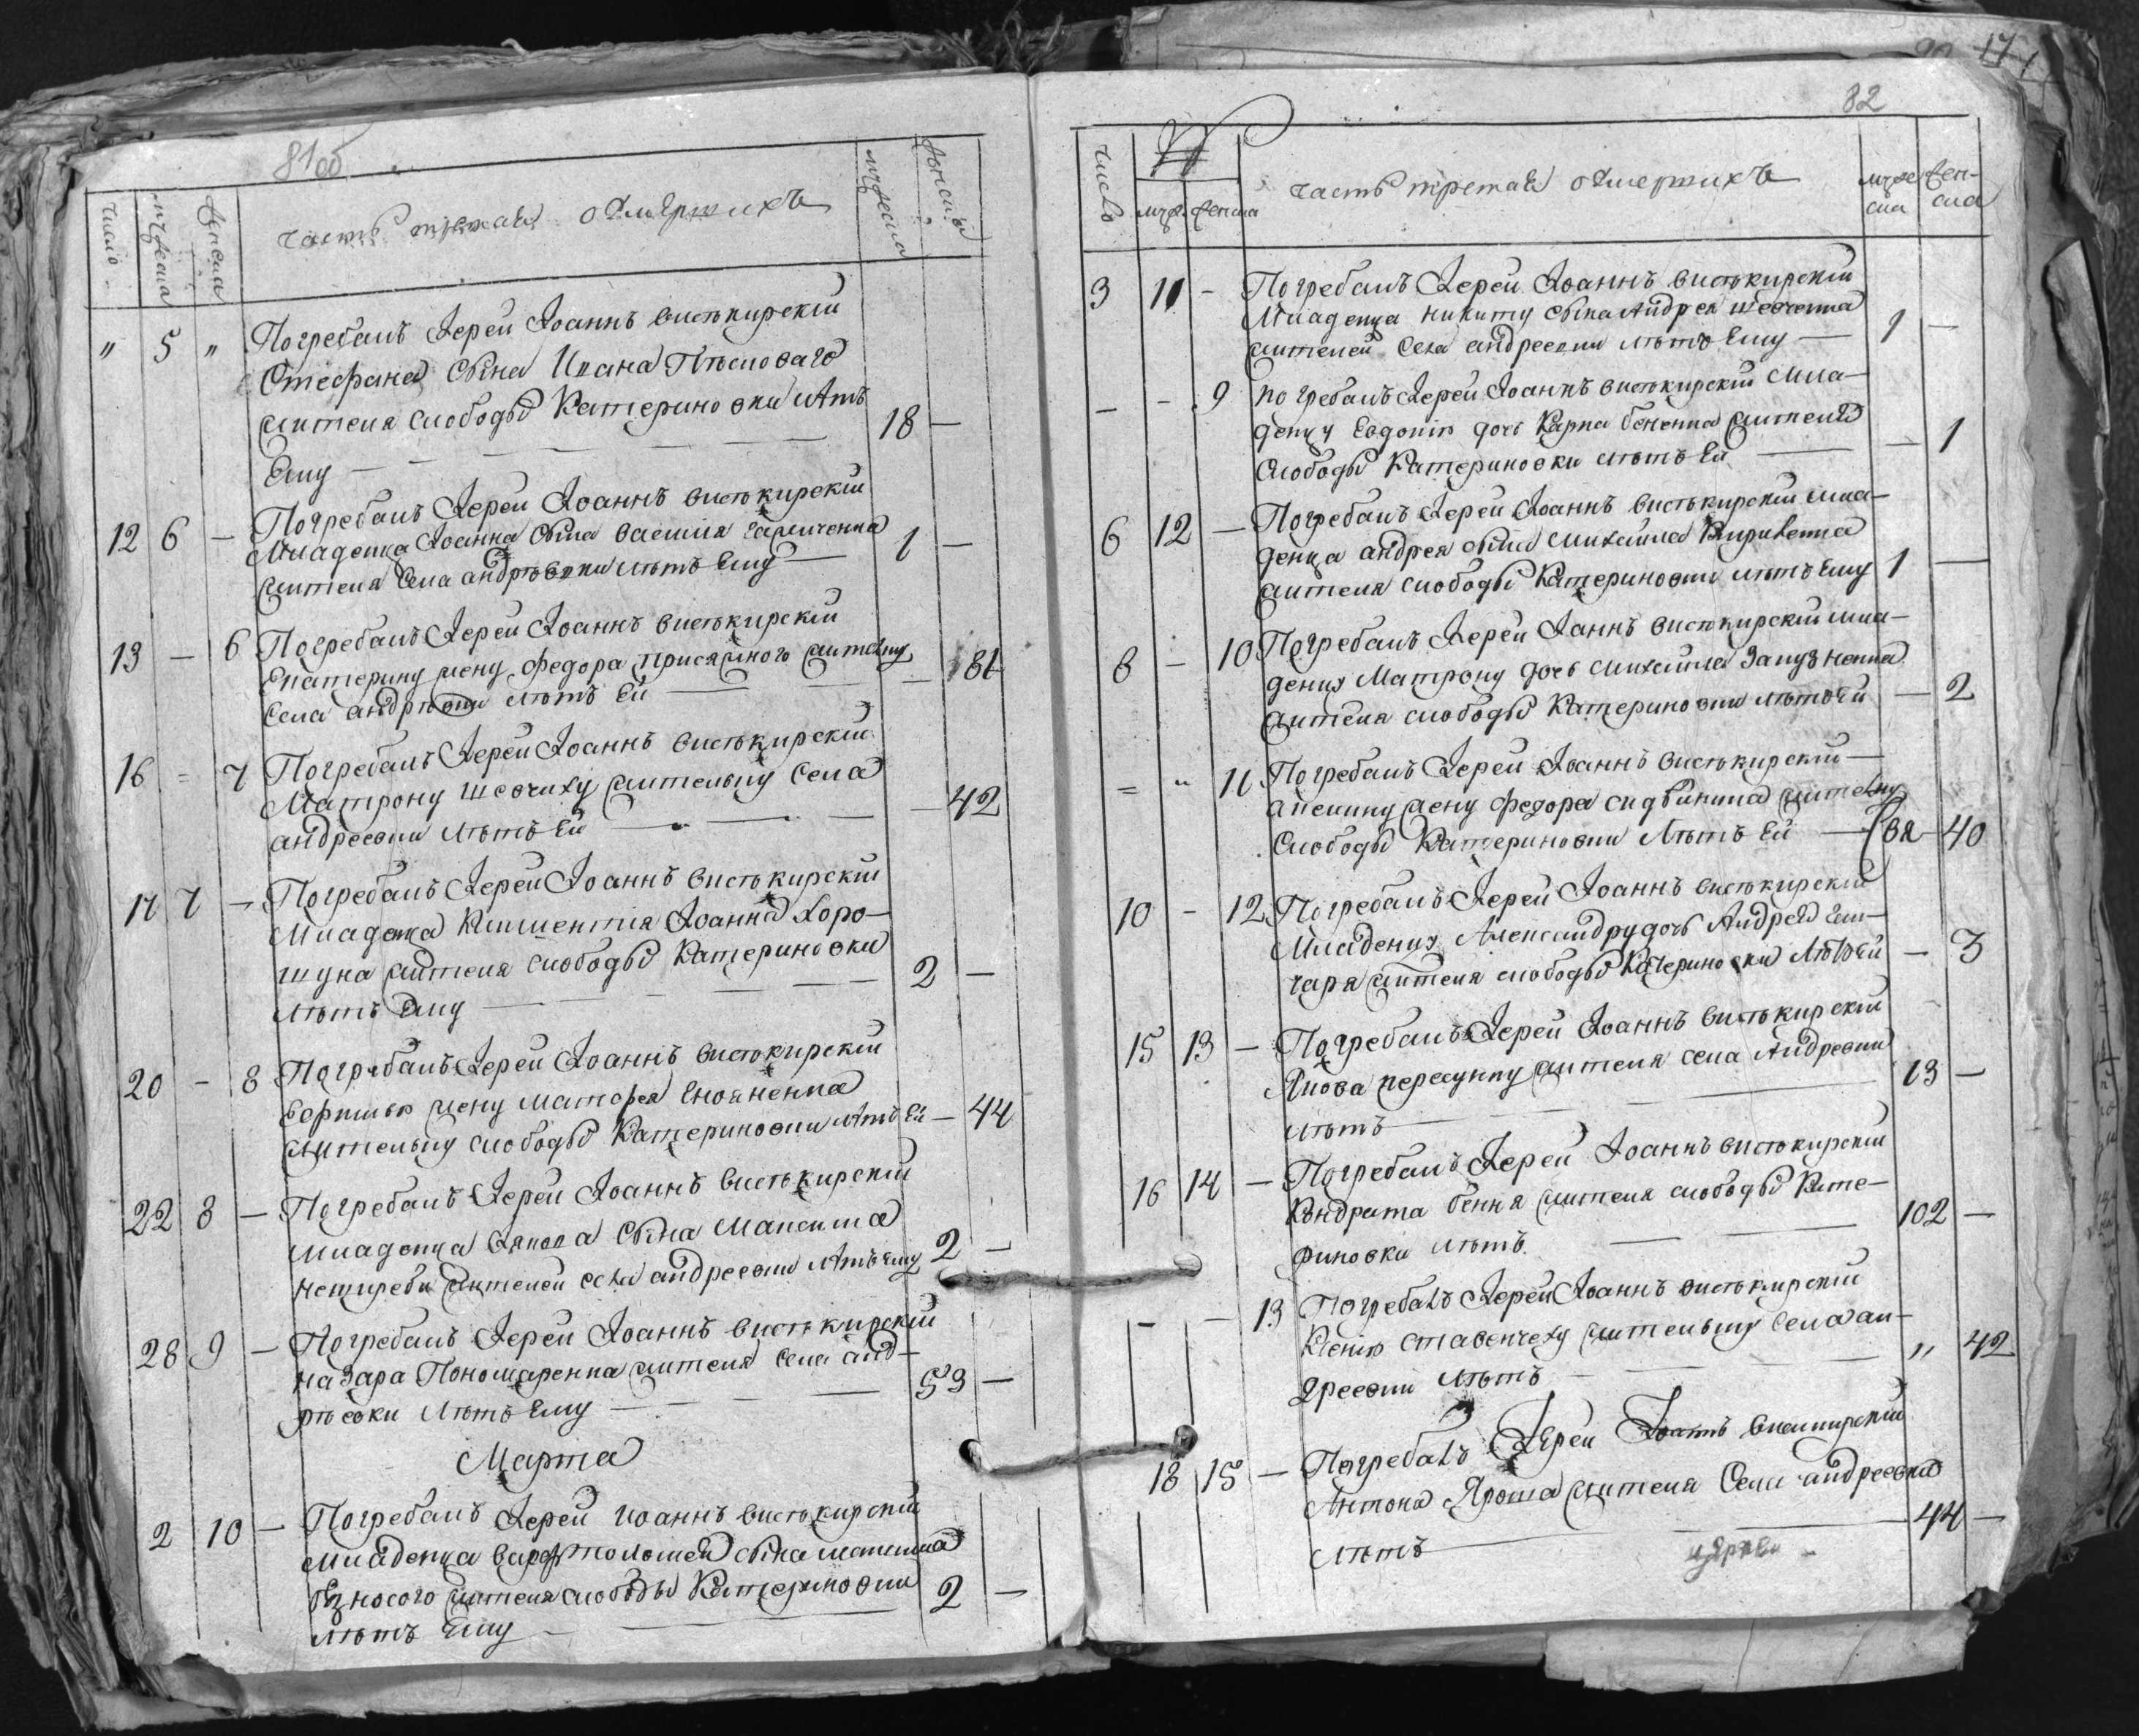 81об
число мужеска женска часть третая о умершихъ мужеска женска
" 5 " Погребалъ Іерей Іоаннъ Вистькирскій
Стефана сына Ивана Пѣсковаго
жителя слободы Катериновки лѣтъ
Ему 18 —
12 6 — Погребалъ Іерей Іоаннъ Вистькирскій
Младенца Іоанна сына Василія
жителя села андрѣевки лѣтъ Ему 1 —
13 — 6 Погребалъ Іерей Іоаннъ Вистькирскій
Екатерину жену Федора Присяжного жителку
села андрѣевки лѣтъ Ей — 81
16 = 7 Погребалъ Іерей Іоаннъ Вистькирскій
Матрону Шевчиху жителку села
андреевки лѣтъ Ей — 42
17 7 — Погребалъ Іерей Іоаннъ Вистькирскій
Младенца Климентія Іоанна Хоро-
шуна жителя слободы Катериновки
лѣтъ Ему 2 —
20 — 8 Погребалъ Іерей Іоаннъ Вистькирскій
жену Матфея
жителку слободы Катериновки лѣтъ Ей — 44
22 8 — Погребалъ Іерей Іоаннъ Вистькирскій
Младенца Якова сына Максима
Нетреби жителей села андреевки лѣтъ Ему 2 —
28 9 — Погребалъ Іерей Іоаннъ Вистькирскій
Назара Пономаренка жителя села анд-
рѣевки лѣтъ Ему 53 —
Марта
2 10 — Погребалъ Іерей Иоаннъ Вистькирскій
Младенца Варфтоломея сына
жителя слободы Катериновки
лѣтъ Ему 2 —
82
число муже. женска часть третая о умершихъ муже
ска жен-
ска
3 11 — Погребалъ Іерей Іоаннъ Вистькирскій
Младенца Никиту сына Андрея Шевченка
жителей села андреевки лѣтъ Ему 1 —
— — 9 погребалъ Іерей Іоаннъ Вистькирскій Мла-
денцу Евдокію дочь Карпа жителя
слободы Катериновки лѣтъ Ей — 1
6 12 — Погребалъ Іерей Іоаннъ Вистькирскій мла-
денца андрея сына Михайла Кириченка
жителя слободы Катериновки лѣтъ Ему 1 —
8 — 10 Погребалъ Іерей Іаннъ Вистькирскій мла-
денцу Матрону дочь Михайла
жителя слободы Катериновки лѣтъ Ей — 2
= " 11 Погребалъ Іерей Іоаннъ Вистькирскій —
жену Федора жителку
слободы Катериновки лѣтъ Ей — 40
10 — 12 Погребалъ Іерей Іоаннъ Вистькирскій
Младенцу Александру дочь Андрея
чаря жителя слободы Катериновки лѣтъ Ей — 3
15 13 — Погребалъ Іерей Іоаннъ Вистькирскій
Якова жителя села Андреевки
лѣтъ 13 —
16 14 — Погребалъ Іерей Іоаннъ Вистькирскій
Кондрата жителя слободы Кате-
риновки лѣтъ 102 —
— — 13 Погребалъ Іерей Іоаннъ Вистькирскій
Ксенію жителку села ан-
дреевки лѣтъ " 42
18 15 — Погребалъ Іерей Іоаннъ
Антона Яроша жителя села андреевки
лѣтъ 44 —